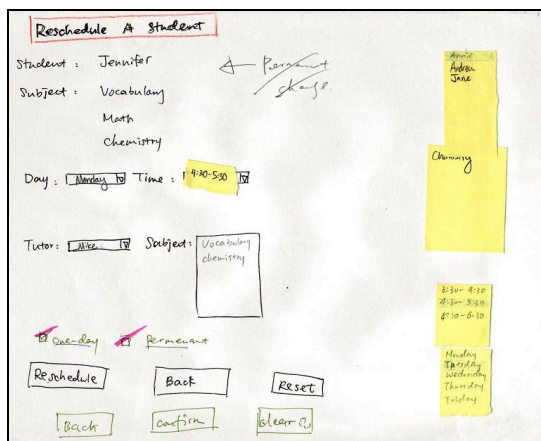 Reschedule A Student
Student : Jennifer
Subject : Vocabulary
Math
Chemistry
Day : Monday Time : 4:30-5:30
Tutor: Mike Subject: Vocabulary
chemistry
one-day Permenant
Reschedule Back Reset
Back Confirm
Annie
Andrew
Jane
Chemistry
3:30- 4:30
4:30- 5:30
Monday
Tuesday
Wednesday
Thursday
Friday